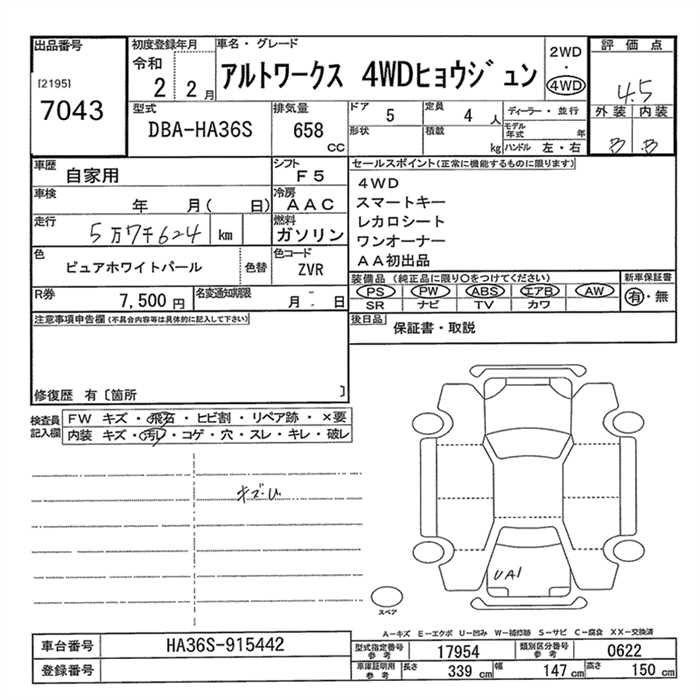 出品番号
[2195]
7043
初度登録年月
令和 2 2 月
車名・グレード
アルトワークス 4WDヒョウジュン
2WD
・
4WD
評価点
4.5
外装 内装
B B
型式
DBA-HA36S
排気量
658
CC
ドア 5
形状
定員 4 人
積載 kg
ディーラー・並行
モデル年式 年
ハンドル 左・右
車歴 自家用
シフト F5
車検 年 月( 日)
冷房 AAC
走行 5万7千624 km
燃料 ガソリン
色 ピュアホワイトパール
色替
色コード ZVR
R券 7,500 円
名変通知期限 月 - 日
セールスポイント(正常に機能するものに限ります)
4WD
スマートキー
レカロシート
ワンオーナー
AA初出品
装備品 (純正品に限り○をつけてください)
PS PW ABS エアB AW
SR ナビ TV カワ
新車保証書
有・無
後日品 保証書・取説
注意事項申告欄 (不具合内容等は具体的に記入して下さい)
修復歴 有〔箇所 〕
検査員記入欄
FW キズ・飛石・ヒビ割・リペア跡・×要
内装 キズ・汚レ・コゲ・穴・スレ・キレ・破レ
キズ・U
UA1
スペア
A-キズ E-エクボ U-凹み W-補修跡 S-サビ C-腐食 XX-交換済
車台番号 HA36S-915442
登録番号
型式指定番号 参考 17954
類別区分番号 参考 0622
車庫証明用 参考 長さ 339 cm 幅 147 cm 高さ 150 cm